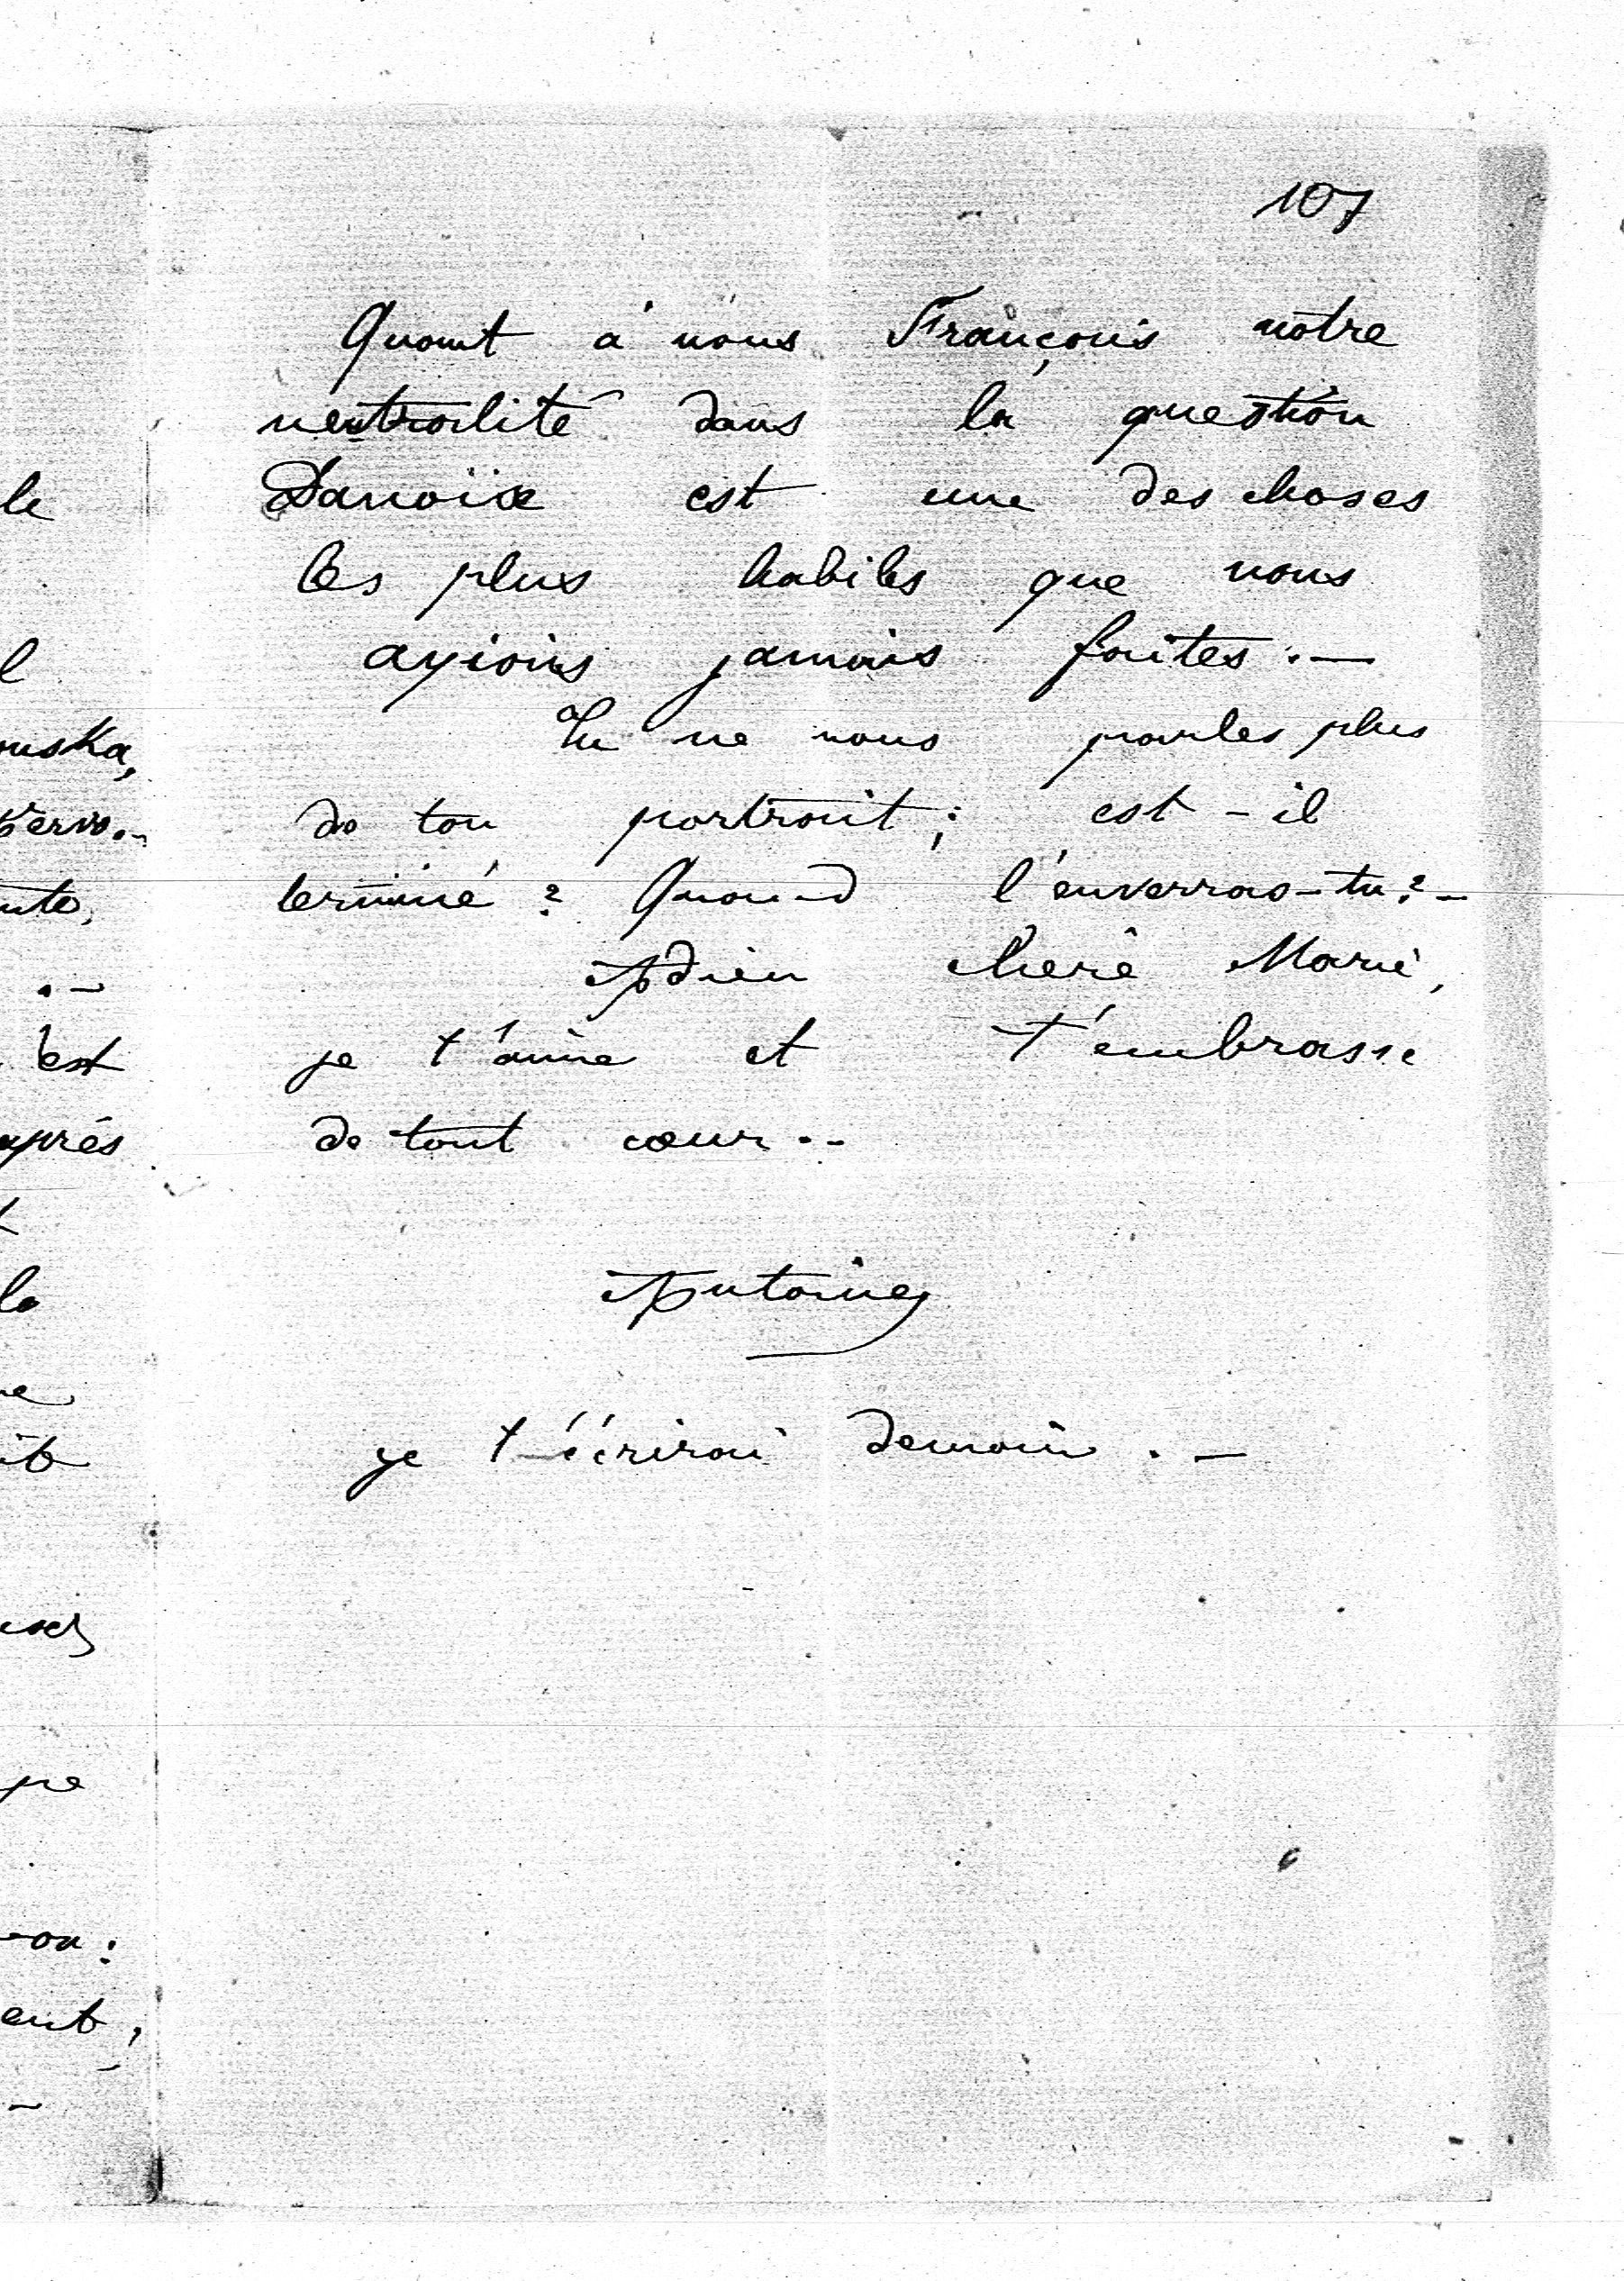 107
Quant à nous Français notre
neutralité dans la question
Danoise est une des choses
les plus habiles que nous
ayions jamais faites. —
Tu ne nous parles plus
de ton portrait ; est-il
terminé ? Quand l'enverras-tu ? -
Adieu chère Marie,
je t'aime et t'embrasse
de tout cœur. -
Antoine
je t'écrirai demain. —
le
l
ouska,
est
après
la
ent,